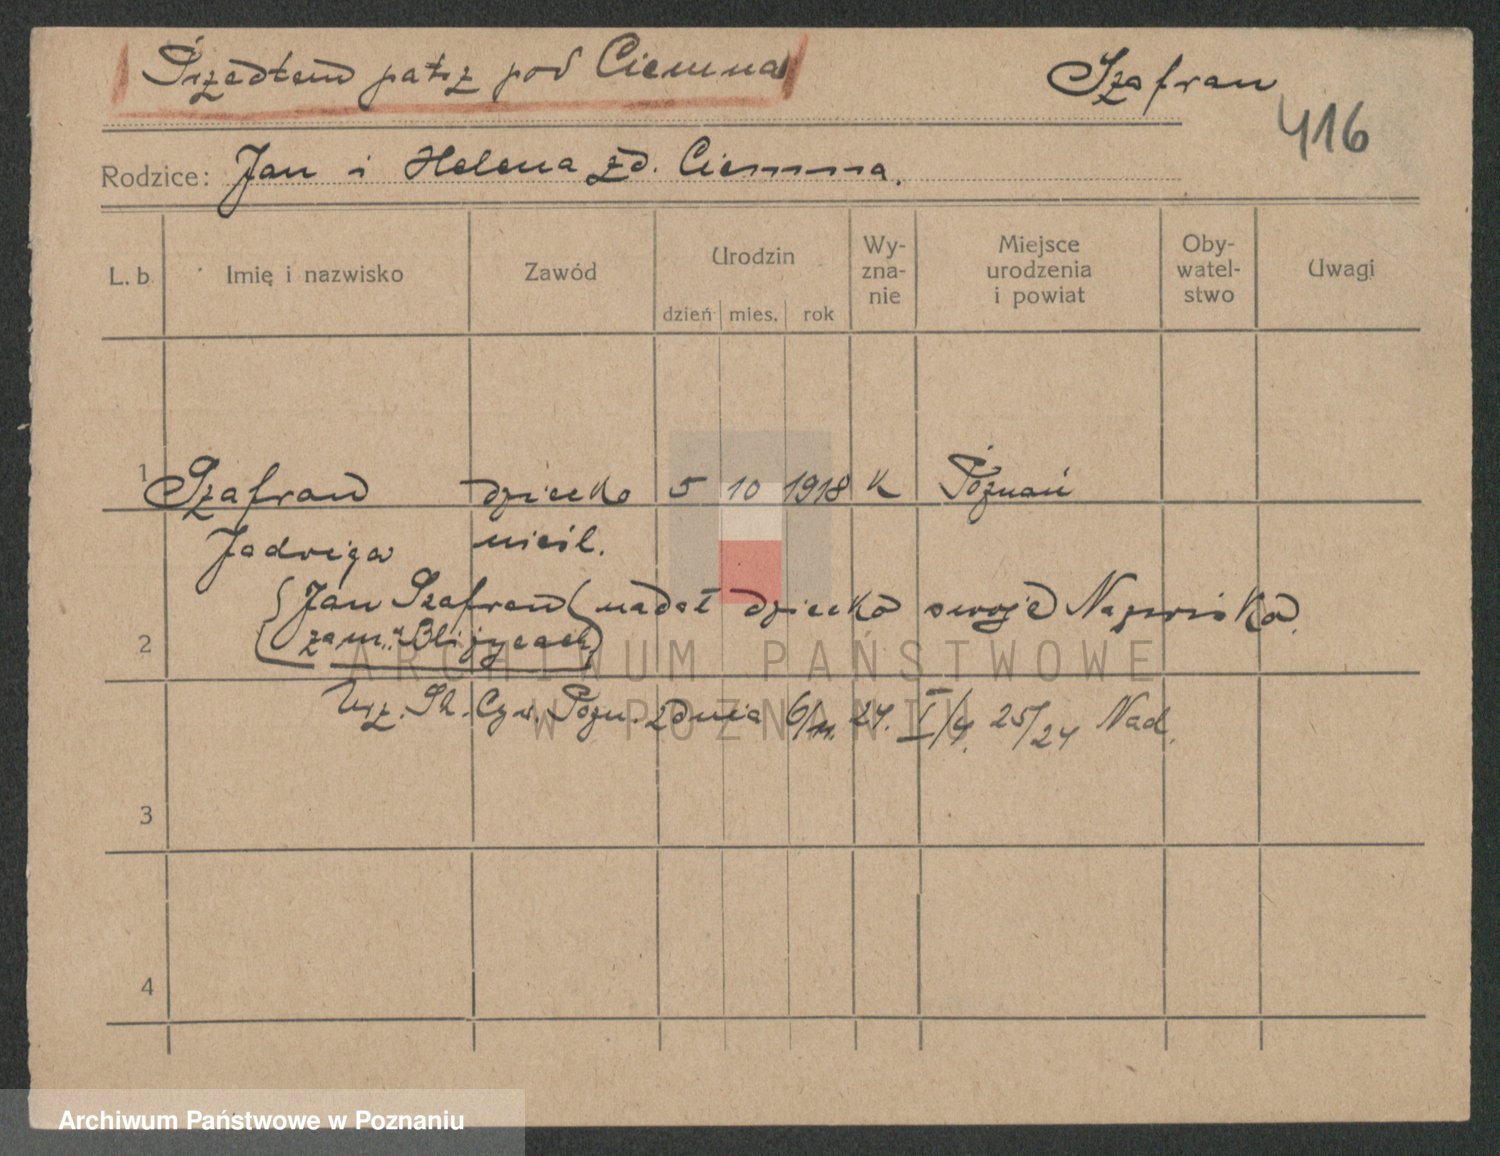 Przedtem patrz pod Ciemna Szafran
416
Rodzice: Jan i Helena zd. Ciemna.
L. b. Imię i nazwisko Zawód Urodzin dzień mies. rok Wy-zna-nie Miejsce urodzenia i powiat Oby-watel-stwo Uwagi
1 Szafran dziecko 5 10 1918 k Poznań
Jadwiga nieśl.
Jan Szafran nadał dziecku swoje Nazwisko.
2 zam.
ARCHIWUM PAŃSTWOWE
Urz. St. Cyw. Pozn. z dnia 6/11. 24. I/4. 25/24 Nad.
W POZNANIU
3
4
Archiwum Państwowe w Poznaniu